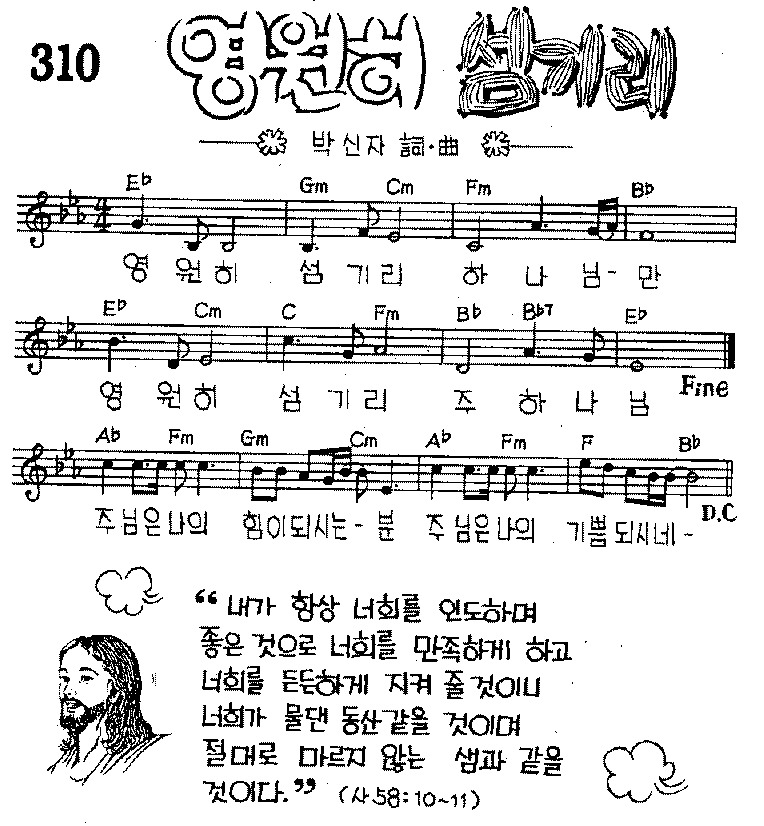 310
영원히 섬기리
박신자 詞·曲
Eb Gm Cm Fm Bb
영 원 히 섬 기 리 하 나 님- 만
Eb Cm C Fm Bb Bb7 Eb
영 원 히 섬 기 리 주 하 나 님
Fine
Ab Fm Gm Cm Ab Fm F Bb
주 님은 나의 힘이되시는- 분 주 님은 나의 기쁨되시네-
D.C
“내가 항상 너희를 인도하며
좋은 것으로 너희를 만족하게 하고
너희를 든든하게 지켜 줄것이니
너희가 물댄 동산같을 것이며
절대로 마르지 않는 샘과 같을
것이다.” (사58:10~11)